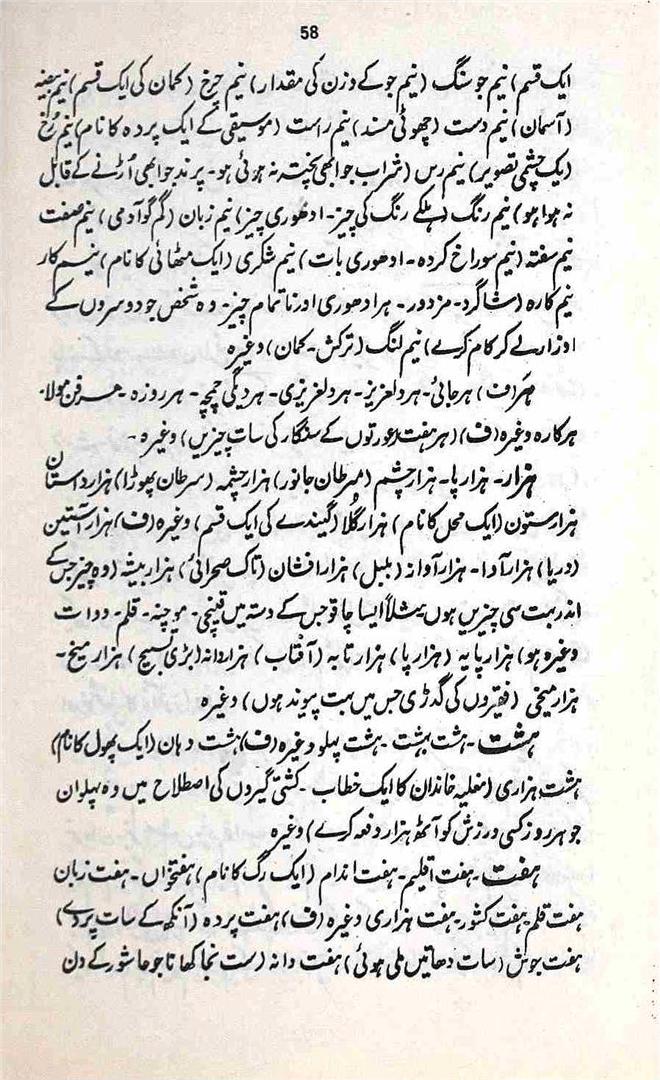 58
ایک قسم) نیم جو سنگ (نیم جو کے وزن کی مقدار) نیم چرخ (کمان کی ایک قسم) نیم بیضہ
(آسمان) نیم دست (چھوٹی مسند) نیم راست (موسیقی کے ایک پردہ کا نام) نیم رُخ
(یک چشمی تصویر) نیم رس (شراب جو ابھی پختہ نہ ہوئی ہو۔ پرند جو ابھی اُڑنے کے قابل
نہ ہوا ہو) نیم رنگ (ہلکے رنگ کی چیز۔ ادھوری چیز) نیم زبان (کم گو آدمی) نیم صفت
نیم سفتہ (نیم سوراخ کردہ۔ ادھوری بات) نیم شکری (ایک مٹھائی کا نام) نیم کار
نیم کارہ (شاگرد۔ مزدور۔ ہر ادھوری اور ناتمام چیز۔ وہ شخص جو دوسروں کے
اوزار لے کر کام کرے) نیم لنگ (ترکش۔ کمان) وغیرہ
ہَر (ف) ہرجائی۔ ہردلعزیز۔ ہردلعزیزی۔ ہر دیگی چمچہ۔ ہر روزہ۔ ہر فن مولا۔
ہرکارہ وغیرہ (ف) (ہر ہفت (عورتوں کے سنگار کی سات چیزیں) وغیرہ۔
ہزار۔ ہزار پا۔ ہزار چشم (سرطان جانور) ہزار چشمہ (سرطان پھوڑا) ہزار داستان
ہزار ستون (ایک محل کا نام) ہزار گُلا (گیندے کی ایک قسم) وغیرہ (ف) ہزار آستین
(دریا) ہزار آوا۔ ہزار آوانہ (بلبل) ہزار افشان (تاک صحرائی) ہزار بیشہ (وہ چیز جس کے
اندر بہت سی چیزیں ہوں مثلاً ایسا چاقو جس کے دستہ میں قینچی۔ موچنہ۔ قلم۔ دوات
وغیرہ ہو) ہزار پایہ (ہزار پا) ہزار تابہ (آفتاب) ہزار دانہ (بڑی تسبیح) ہزار میخ۔
ہزار میخی (فقیروں کی گدڑی جس میں بہت پیوند ہوں) وغیرہ
ہشت۔ ہشت بہشت۔ ہشت پہلو وغیرہ (ف) ہشت دہان (ایک پھول کا نام)
ہشت ہزاری (مغلیہ خاندان کا ایک خطاب۔ کشتی گیروں کی اصطلاح میں وہ پہلوان
جو ہر روز کسی ورزش کو آٹھ ہزار دفعہ کرے) وغیرہ
ہفت۔ ہفت اقلیم۔ ہفت اندام (ایک رگ کا نام) ہفتخواں۔ ہفت زبان
ہفت قلم۔ ہفت کشور۔ ہفت ہزاری وغیرہ (ف) ہفت پردہ (آنکھ کے سات پردے)
ہفت جوش (سات دھاتیں ملی ہوئی) ہفت دانہ (ست نجا کھانا جو عاشور کے دن